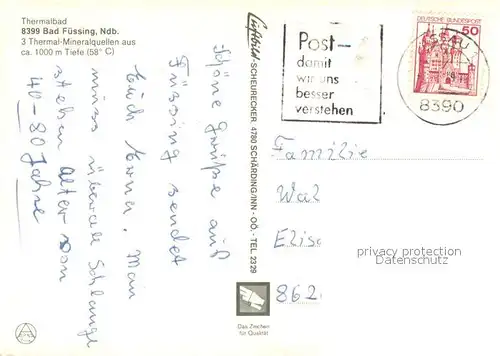 Thermalbad
8399 Bad Füssing, Ndb.
3 Thermal-Mineralquellen aus
ca. 1000 m Tiefe (58° C)
Schöne Grüße aus
Füssing sendet
Euch Erna. Man
muss überall Schlange
stehen Alter von
40-80 Jahre
Luftbild SCHEURECKER, 4780 SCHÄRDING/INN - OÖ. · TEL 2329
Post-
damit
wir uns
besser
verstehen
DEUTSCHE BUNDESPOST
50
8390
Familie
Wal
Elis
862
privacy protection
www.delcampe.net
Das Zeichen
für Qualität